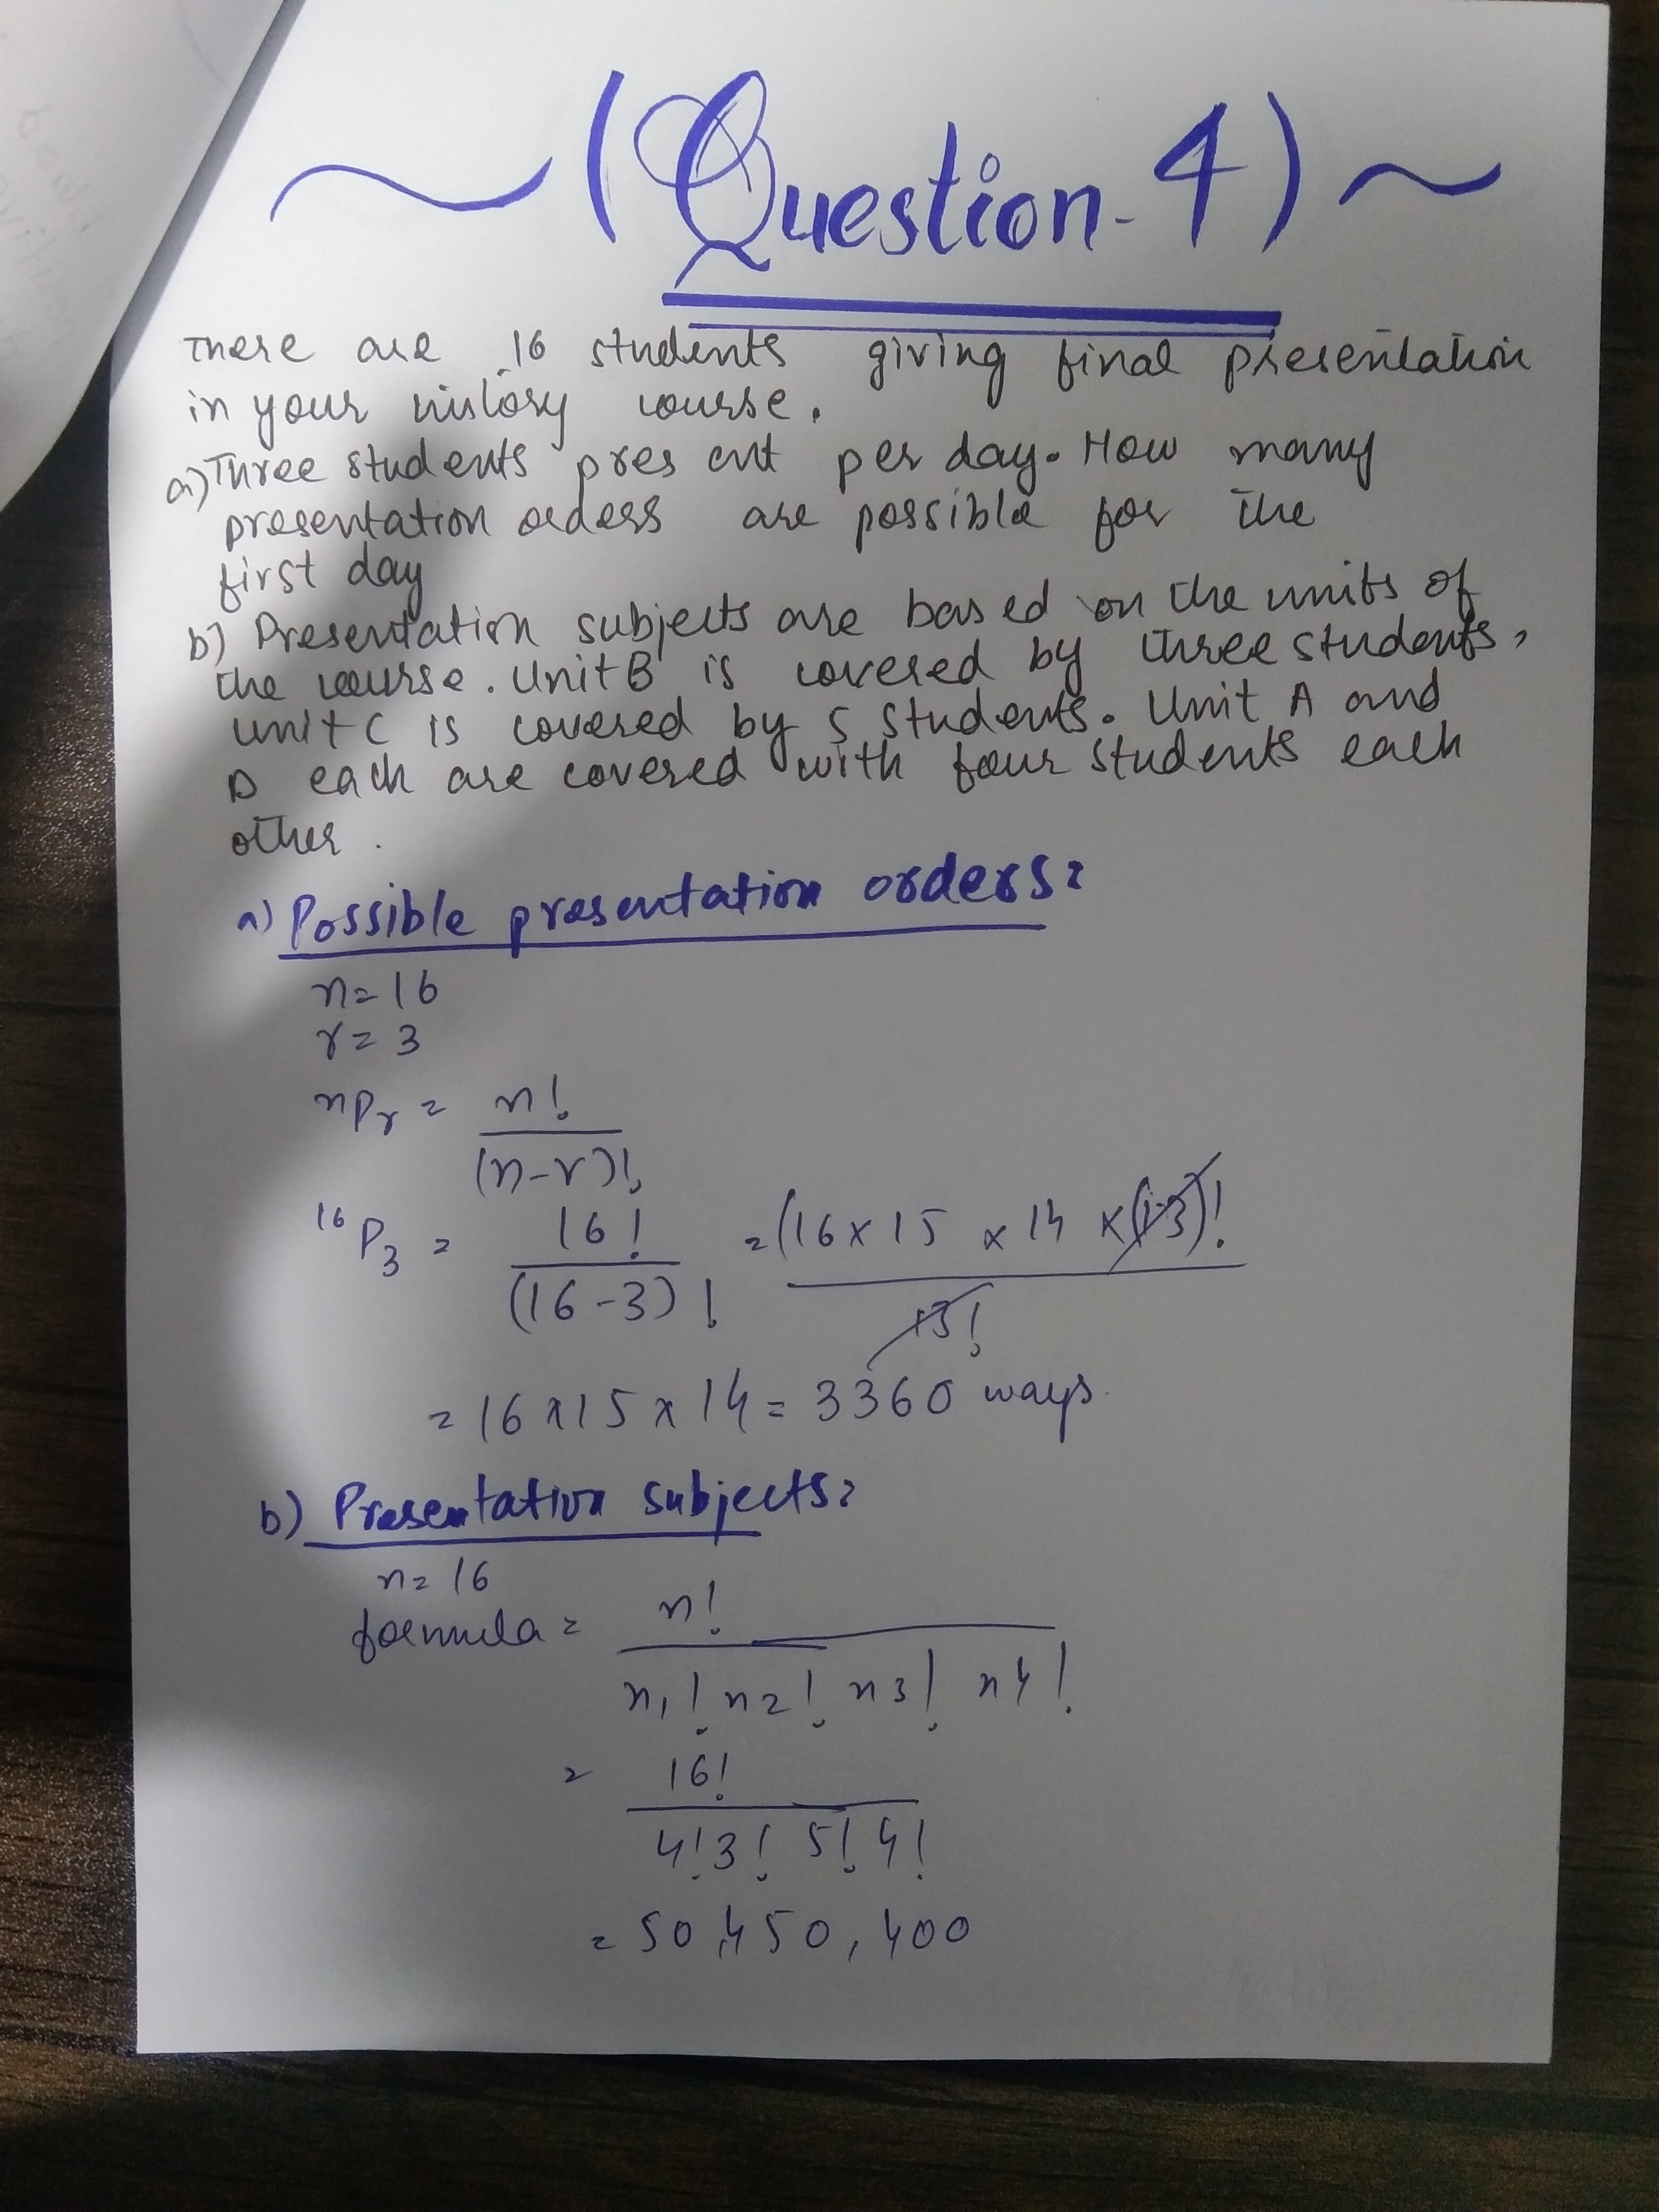 ~(Question-4)~
There are 16 students giving final presentation
in your history course.
a) Three students present per day. How many
presentation orders are possible for the
first day
b) Presentation subjects are based on the units of
the course. Unit B is covered by three students,
unit C is covered by 5 students. Unit A and
D each are covered with four students each
other.
a) Possible presentation orders:
n=16
r=3
nPr = n!
(n-r)!
16P3 = 16! = (16x15 x 14 x(13)!
(16-3)! 13!
= 16x15x14= 3360 ways.
b) Presentation subjects:
n=16
formula = n!
n1! n2! n3! n4!
= 16!
4!3! 5!4!
= 50,450,400